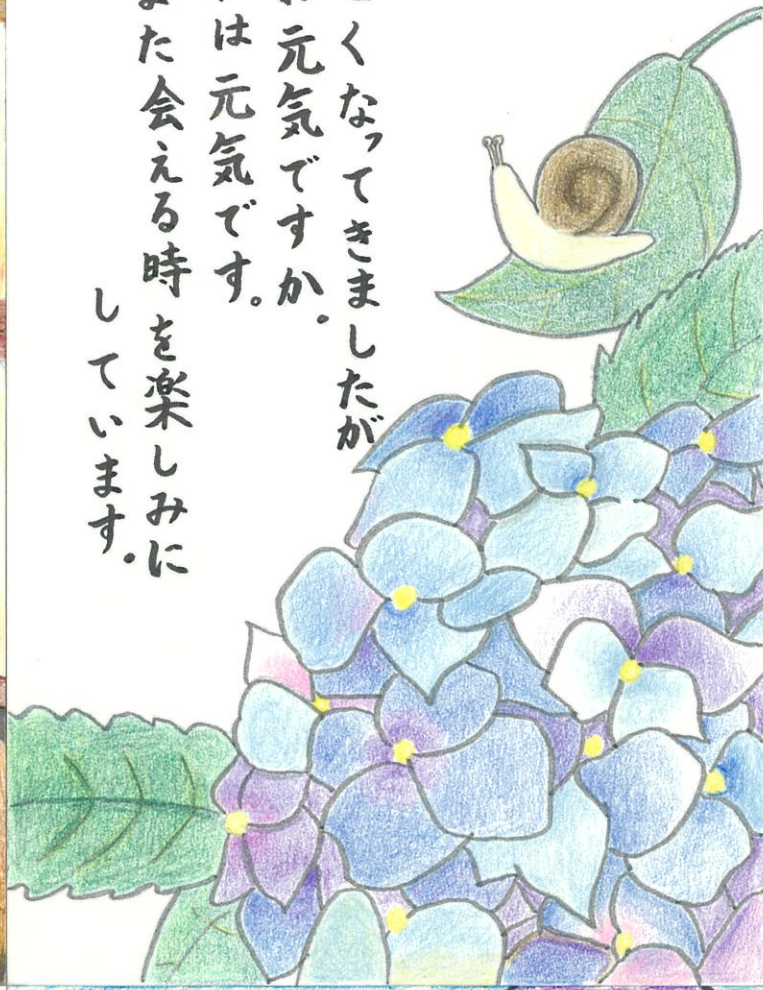 くなってきましたが
元気ですか。
は元気です。
た会える時を楽しみに
しています。